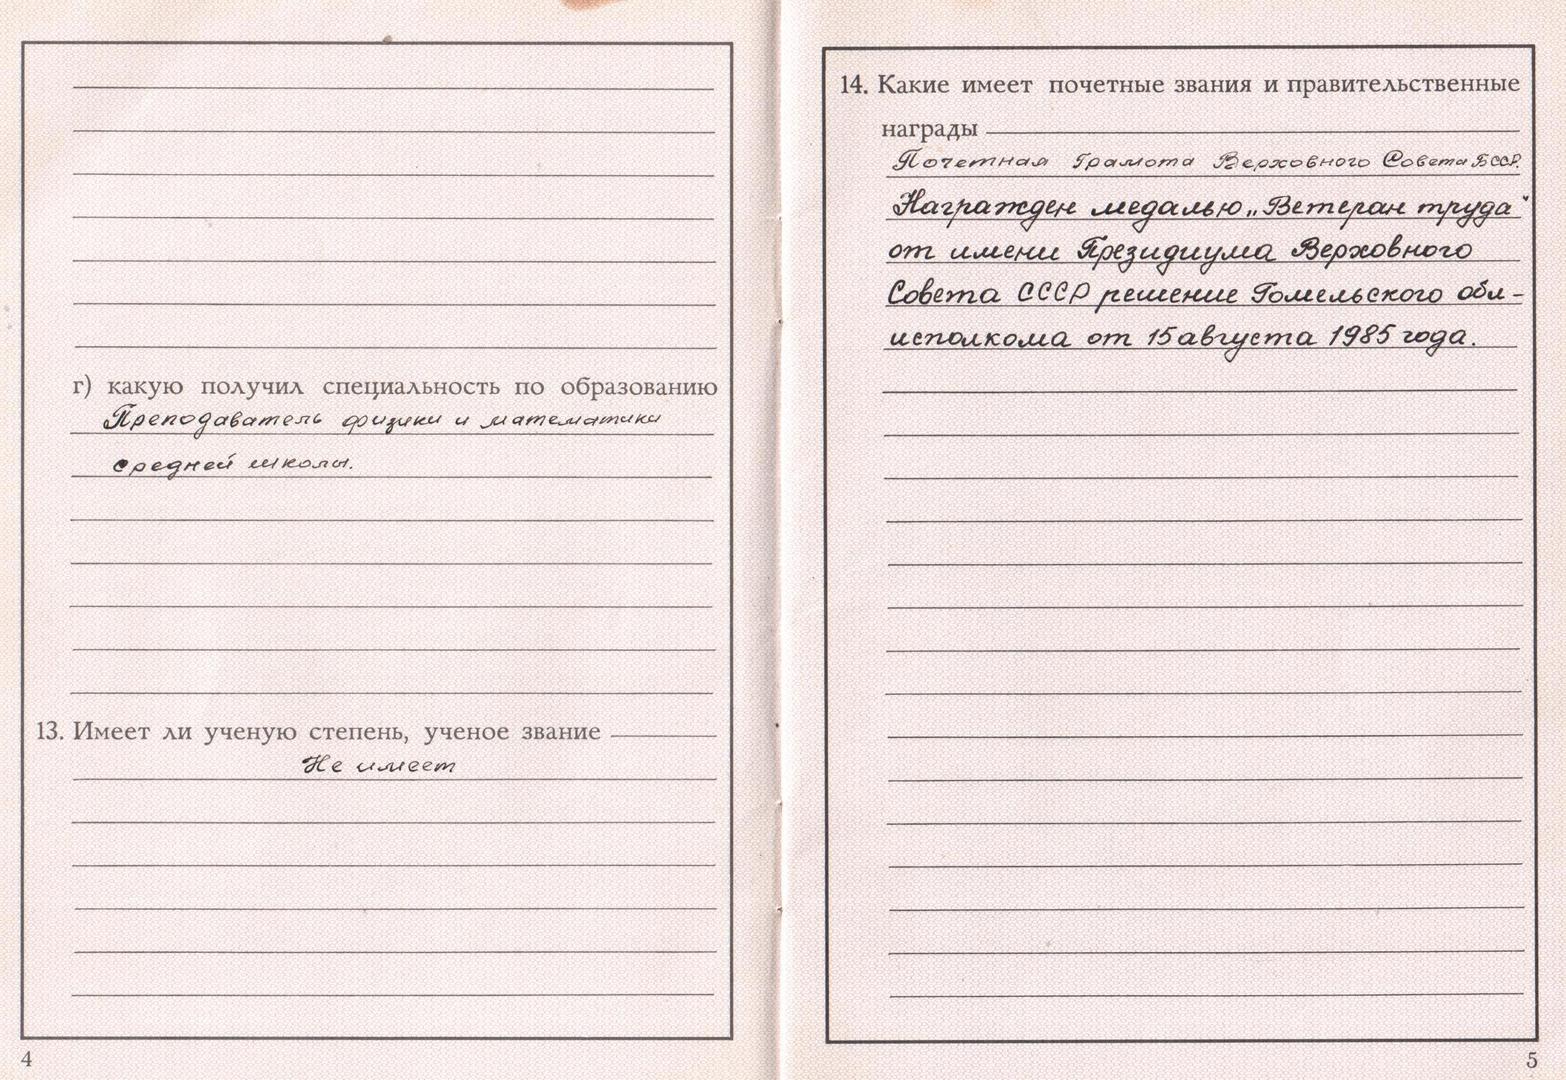 г) какую получил специальность по образованию
Преподаватель физики и математики
средней школы.
13. Имеет ли ученую степень, ученое звание
Не имеет
4
14. Какие имеет почетные звания и правительственные
награды
Почетная Грамота Верховного Совета БССР.
Награжден медалью „Ветеран труда“
от имени Президиума Верховного
Совета СССР решение Гомельского обл-
исполкома от 15 августа 1985 года.
5